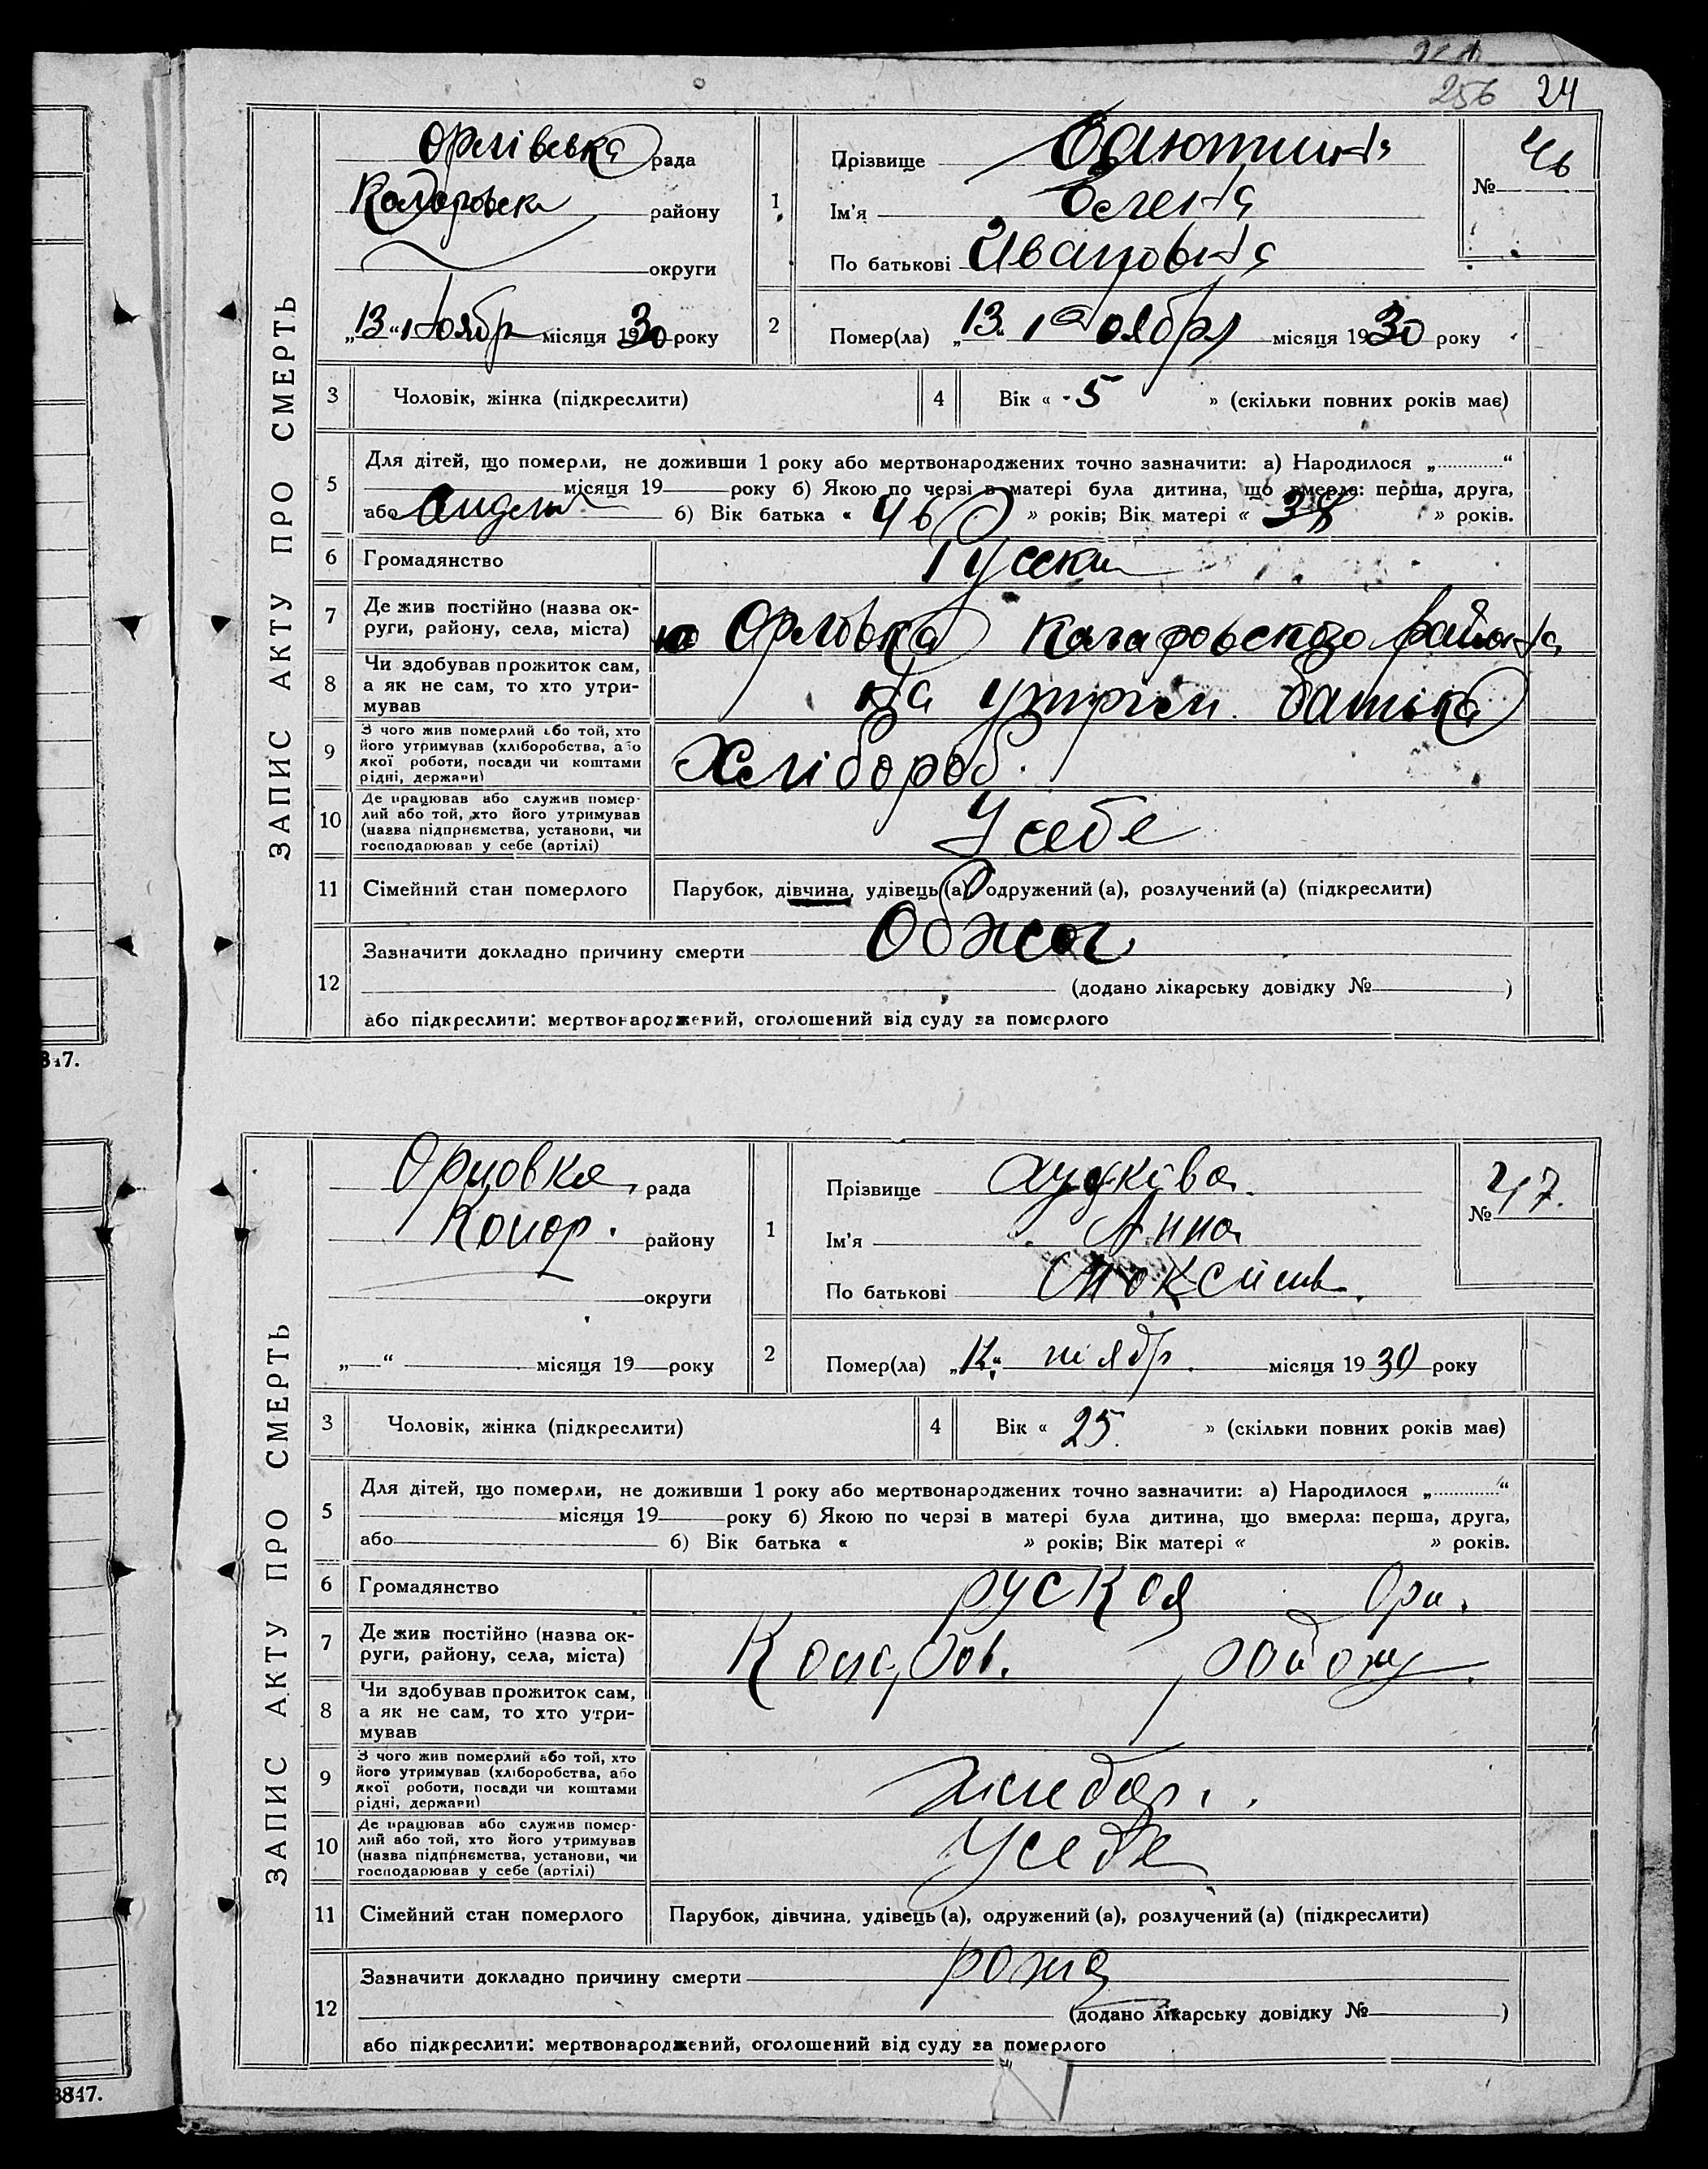 256 24
ЗАПИС АКТУ ПРО СМЕРТЬ
Орлівська рада
району
округи
„13“ Ноябр місяця 1930 року
1
Прізвище
Ім'я Олена
По батькові Ивановна
№ 46
2
Помер(ла) „13“ Ноября місяця 1930 року
3 Чоловік, жінка (підкреслити)
4 Вік « 5 » (скільки повних років має)
5 Для дітей, що померли, не доживши 1 року або мертвонароджених точно зазначити: а) Народилося „ “
місяця 19 року б) Якою по черзі в матері була дитина, що вмерла: перша, друга,
або б) Вік батька « 46 » років; Вік матері « » років.
6 Громадянство Русски
7 Де жив постійно (назва ок-
руги, району, села, міста) Орловка района
8 Чи здобував прожиток сам,
а як не сам, то хто утри-
мував на утрим. батька
9 З чого жив померлий або той, хто
його утримував (хліборобства, або
якої роботи, посади чи коштами
рідні, держави) Хлібороб.
10 Де працював або служив помер-
лий або той, хто його утримував
(назва підприємства, установи, чи
господарював у себе (артілі) У себе
11 Сімейний стан померлого Парубок, дівчина, удівець (а), одружений (а), розлучений (а) (підкреслити)
12 Зазначити докладно причину смерти Обжог
(додано лікарську довідку № )
або підкреслити: мертвонароджений, оголошений від суду за померлого
847.
ЗАПИС АКТУ ПРО СМЕРТЬ
Орловка рада
району
округи
„ “ місяця 19 року
1
Прізвище
Ім'я Анна
По батькові
№ 47.
2
Помер(ла) ноябр. місяця 1930 року
3 Чоловік, жінка (підкреслити)
4 Вік « 25. » (скільки повних років має)
5 Для дітей, що померли, не доживши 1 року або мертвонароджених точно зазначити: а) Народилося „ “
місяця 19 року б) Якою по черзі в матері була дитина, що вмерла: перша, друга,
або б) Вік батька « » років; Вік матері « » років.
6 Громадянство руская Орл.
7 Де жив постійно (назва ок-
руги, району, села, міста) району
8 Чи здобував прожиток сам,
а як не сам, то хто утри-
мував
9 З чого жив померлий або той, хто
його утримував (хліборобства, або
якої роботи, посади чи коштами
рідні, держави)
10 Де працював або служив помер-
лий або той, хто його утримував
(назва підприємства, установи, чи
господарював у себе (артілі) У себе
11 Сімейний стан померлого Парубок, дівчина, удівець (а), одружений (а), розлучений (а) (підкреслити)
12 Зазначити докладно причину смерти рожа
(додано лікарську довідку № )
або підкреслити: мертвонароджений, оголошений від суду за померлого
3847.